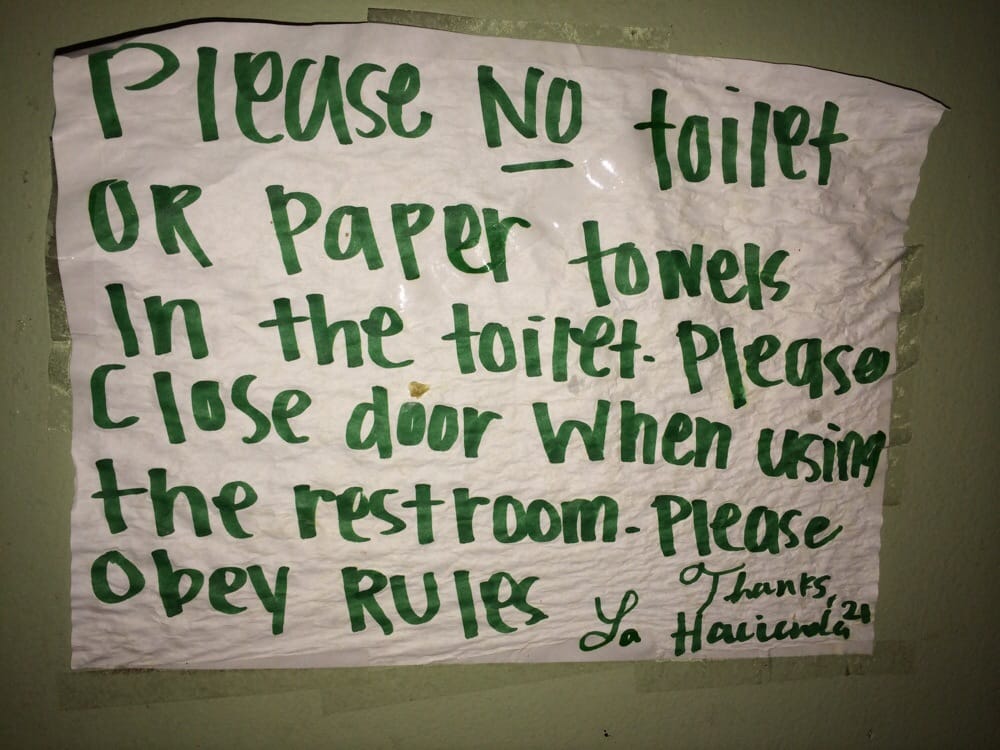 Please NO toilet
OR Paper towels
In the toilet. Please
Close door When using
the restroom. Please
Obey RULes
Thanks,
La Hacienda 21